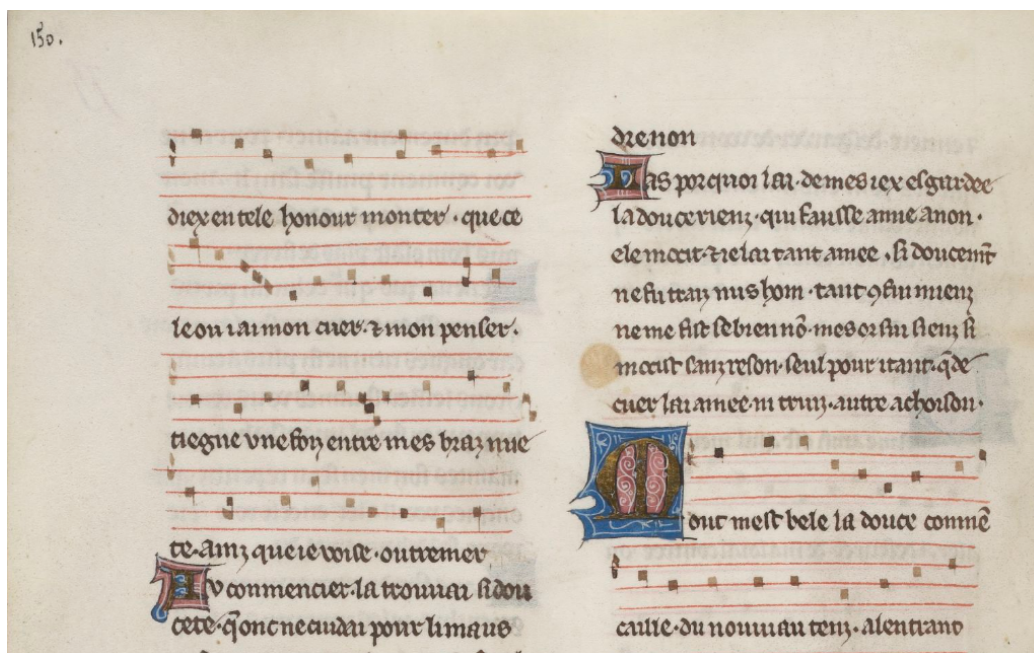 150.
diex en tele honour monter · que ce
le ou iai mon cuer · ⁊ mon penser ·
tiegne vne foiz entre mes braz nue
te · ainz que ie voise · outremer
Au conmencier · la trouuai si dou
cete · q̃ onc ne cuidai pour li maus
dre non
Las por quoi lai · de mes iex esgardee
la douce riens · qui fausse amie a non ·
ele mocit · ⁊ ie lai tant amee · si doucem̃t
ne fu traiz nus hom · tant 9 fui miens
ne me fist se bien nō · mes or sui siens si
mocist sanz reson · seul pour itant · q̃ de
cuer lai amee · ni truis · autre achoison ·
Mout mest bele la douce conmẽ
caille · du nouuiau tens · a lentrant